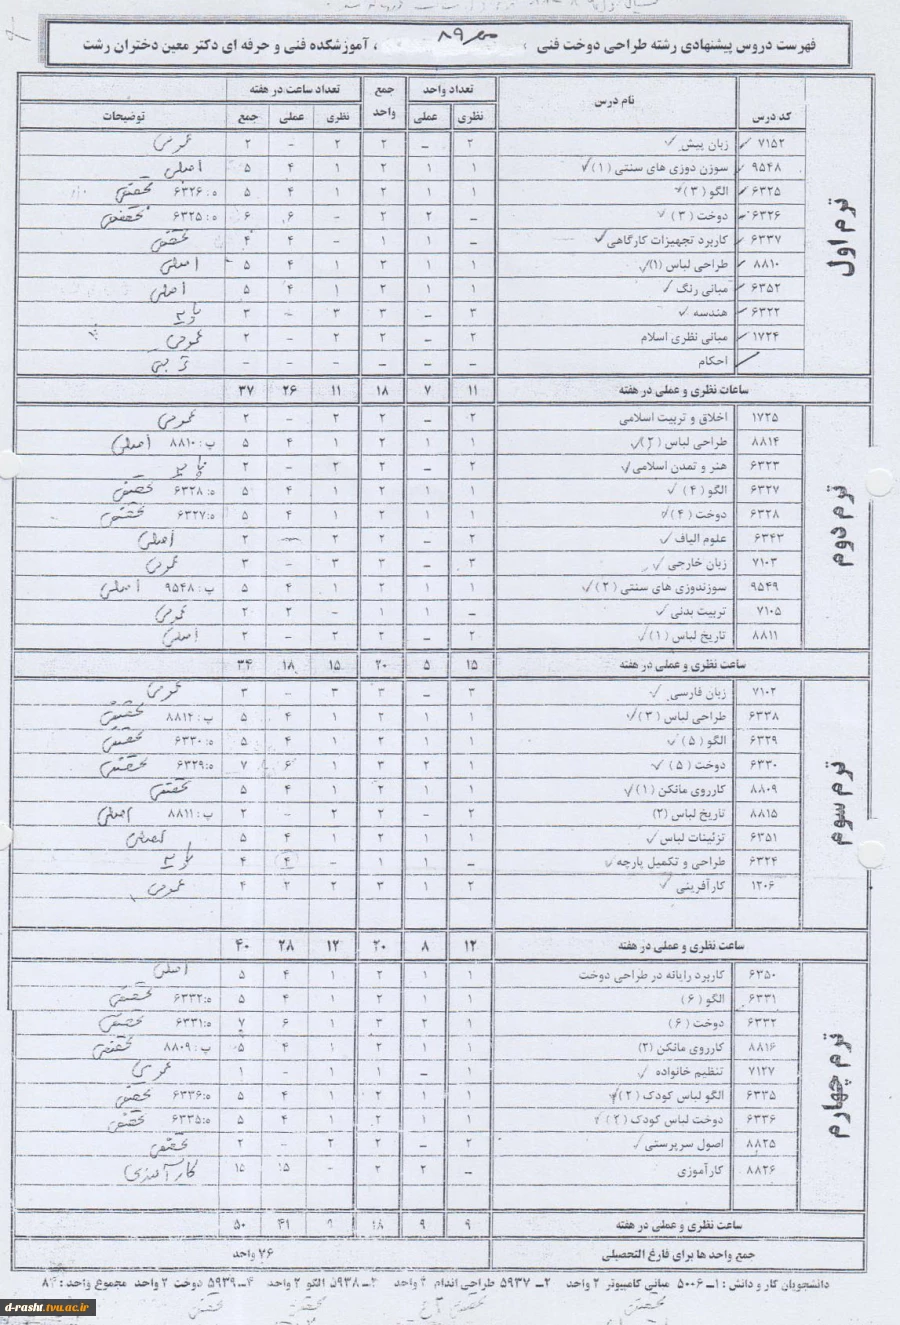 مهر ۸۹
فهرست دروس پیشنهادی رشته طراحی دوخت فنی ، آموزشکده فنی و حرفه ای دکتر معین دختران رشت
کد درس نام درس تعداد واحد جمع واحد تعداد ساعت در هفته توضیحات
نظری عملی نظری عملی جمع
ترم اول
۷۱۵۲ زبان پیش ۲ – ۲ ۲ – ۲ عمومی
۹۵۴۸ سوزن دوزی های سنتی (۱) ۱ ۱ ۲ ۱ ۴ ۵ اصلی
۶۳۲۵ الگو (۳) ۱ ۱ ۲ ۱ ۴ ۵ ه: ۶۳۲۶ تخصصی
۶۳۲۶ دوخت (۳) – ۲ ۲ – ۶ ۶ ه: ۶۳۲۵ تخصصی
۶۳۳۷ کاربرد تجهیزات کارگاهی – ۱ ۱ – ۴ ۴ تخصصی
۸۸۱۰ طراحی لباس (۱) ۱ ۱ ۲ ۱ ۴ ۵ اصلی
۶۳۵۲ مبانی رنگ ۱ ۱ ۲ ۱ ۴ ۵ اصلی
۶۳۲۲ هندسه ۳ – ۳ ۳ – ۳ پایه
۱۷۲۴ مبانی نظری اسلام ۲ – ۲ ۲ – ۲ عمومی
احکام – – – – – –
ساعات نظری و عملی در هفته ۱۱ ۷ ۱۸ ۱۱ ۲۶ ۳۷
ترم دوم
۱۷۲۵ اخلاق و تربیت اسلامی ۲ – ۲ ۲ – ۲ عمومی
۸۸۱۴ طراحی لباس (۲) ۱ ۱ ۲ ۱ ۴ ۵ پ: ۸۸۱۰ اصلی
۶۳۲۳ هنر و تمدن اسلامی ۲ – ۲ ۲ – ۲ پایه
۶۳۲۷ الگو (۴) ۱ ۱ ۲ ۱ ۴ ۵ ه: ۶۳۲۸ تخصصی
۶۳۲۸ دوخت (۴) ۱ ۱ ۲ ۱ ۴ ۵ ه: ۶۳۲۷ تخصصی
۶۳۴۳ علوم الیاف ۲ – ۲ ۲ – ۲ اصلی
۷۱۰۳ زبان خارجی ۳ – ۳ ۳ – ۳ عمومی
۹۵۴۹ سوزندوزی های سنتی (۲) ۱ ۱ ۲ ۱ ۴ ۵ پ: ۹۵۴۸ اصلی
۷۱۰۵ تربیت بدنی – ۱ ۱ – ۲ ۲ عمومی
۸۸۱۱ تاریخ لباس (۱) ۲ – ۲ ۲ – ۲ اصلی
ساعت نظری و عملی در هفته ۱۵ ۵ ۲۰ ۱۵ ۱۸ ۳۴
ترم سوم
۷۱۰۲ زبان فارسی ۳ – ۳ ۳ – ۳ عمومی
۶۳۳۸ طراحی لباس (۳) ۱ ۱ ۲ ۱ ۴ ۵ پ: ۸۸۱۴ تخصصی
۶۳۲۹ الگو (۵) ۱ ۱ ۲ ۱ ۴ ۵ ه: ۶۳۳۰ تخصصی
۶۳۳۰ دوخت (۵) ۱ ۲ ۳ ۱ ۶ ۷ ه: ۶۳۲۹ تخصصی
۸۸۰۹ کارروی مانکن (۱) ۱ ۱ ۲ ۱ ۴ ۵ تخصصی
۸۸۱۵ تاریخ لباس (۲) ۲ – ۲ ۲ – ۲ پ: ۸۸۱۱ اصلی
۶۳۵۱ تزئینات لباس ۱ ۱ ۲ ۱ ۴ ۵ اصلی
۶۳۲۴ طراحی و تکمیل پارچه – ۱ ۱ – ۴ ۴ پایه
۱۲۰۶ کارآفرینی ۲ ۱ ۳ ۲ ۲ ۴ عمومی
ساعت نظری و عملی در هفته ۱۲ ۸ ۲۰ ۱۲ ۲۸ ۴۰
ترم چهارم
۶۳۵۰ کاربرد رایانه در طراحی دوخت ۱ ۱ ۲ ۱ ۴ ۵ اصلی
۶۳۳۱ الگو (۶) ۱ ۱ ۲ ۱ ۴ ۵ ه: ۶۳۳۲ تخصصی
۶۳۳۲ دوخت (۶) ۱ ۲ ۳ ۱ ۶ ۷ ه: ۶۳۳۱ تخصصی
۸۸۱۶ کارروی مانکن (۲) ۱ ۱ ۲ ۱ ۴ ۵ پ: ۸۸۰۹ تخصصی
۷۱۲۷ تنظیم خانواده ۱ – ۱ ۱ – ۱ عمومی
۶۳۳۵ الگو لباس کودک (۲) ۱ ۱ ۲ ۱ ۴ ۵ ه: ۶۳۳۶ تخصصی
۶۳۳۶ دوخت لباس کودک (۲) ۱ ۱ ۲ ۱ ۴ ۵ ه: ۶۳۳۵ تخصصی
۸۸۲۵ اصول سرپرستی ۲ – ۲ ۲ – ۲ تخصصی
۸۸۲۶ کارآموزی – ۲ ۲ – ۱۵ ۱۵ کارآموزی
ساعت نظری و عملی در هفته ۹ ۹ ۱۸ ۹ ۴۱ ۵۰
جمع واحد ها برای فارغ التحصیلی ۷۶ واحد
دانشجویان کار و دانش : ۱ـ ۵۰۰۶ مبانی کامپیوتر ۲ واحد ۲ـ ۵۹۳۷ طراحی اندام ۲ واحد ۳ـ ۵۹۳۸ الگو ۲ واحد ۴ـ ۵۹۳۹ دوخت ۲ واحد مجموع واحد : ۸۴
d-rasht.tvu.ac.ir